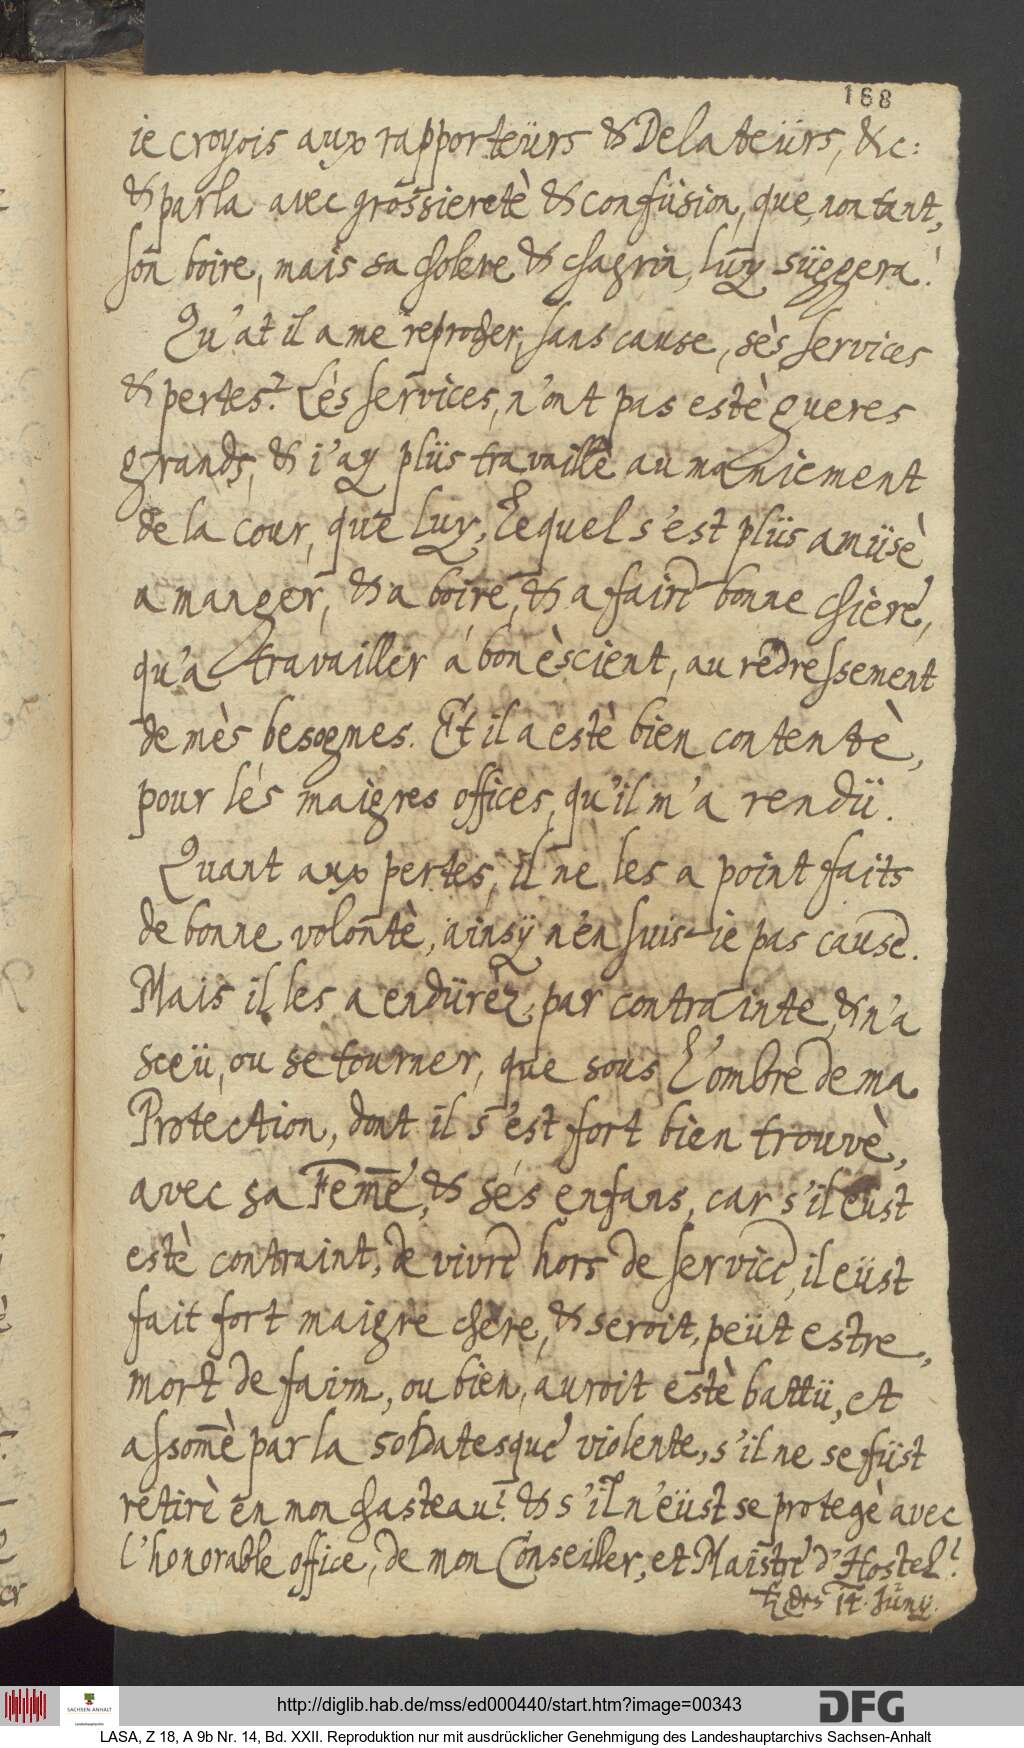 168
ie croyois aux rapporteürs & Delateürs, &c:
& parla avec grossieretè & confüsion, que, non tant,
son boire, mais sa cholere & chagrin, luy süggera!
Qu'at il a me reprocher, sans cause, sès services
& pertes? Lès services, n'ont pas estè gueres
grands, & i'ay plüs travaillè au maniement
de la cour, que luy, Lequel s'est plüs amüsè
a manger, & a boire, & a faire bonne chière,
qu'a travailler á bon èscient, au redressement
de mès besognes. Et il a estè bien contentè,
pour lés maigres offices, qu'il m'a rendü.
Quant aux pertes, il ne les a point faits
de bonne volontè, ainsÿ n'en suis-ie pas cause.
Mais il les a endürèz, par contrainte, & n'a
sceü, ou se tourner, que sous L'ombre de ma
Protection, dont il s'est fort bien trouvè,
avec sa Fem̄e, & sés enfans, car s'il eüst
estè contraint, de vivre hors de service, il eüst
fait fort maigre chère, & seroit, peüt estre,
mort de faim, ou bien, auroit estè battü, et
assom̄è par la soldatesque violente, s'il ne se füst
retirè en mon chasteau? & s'il n'eüst se protegè avec
l'honorable office, de mon Conseiller, et Maistre d'Hostel!
♄ des 14. Junÿ.
http://diglib.hab.de/mss/ed000440/start.htm?image=00343
SACHSEN-ANHALT
Landeshauptarchiv
DFG
LASA, Z 18, A 9b Nr. 14, Bd. XXII. Reproduktion nur mit ausdrücklicher Genehmigung des Landeshauptarchivs Sachsen-Anhalt